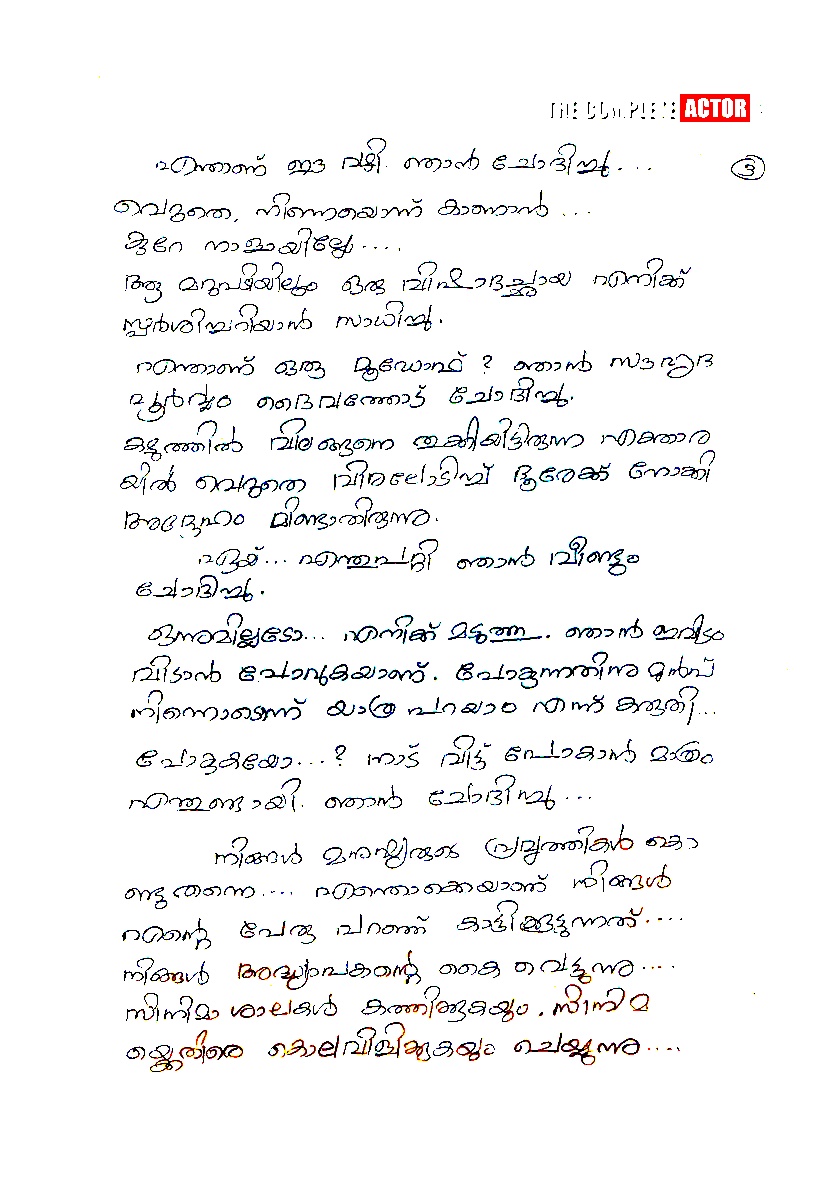 THE COMPLETE ACTOR
എന്താണ് ഈ വഴി. ഞാൻ ചോദിച്ചു... ൩
വെറുതെ, നിന്നെയൊന്ന് കാണാൻ...
കുറേ നാളായില്ലേ....
ആ മറുപടിയിലും ഒരു വിഷാദച്ഛായ എനിക്ക്
സ്പർശിച്ചറിയാൻ സാധിച്ചു.
എന്താണ് ഒരു മൂഡോഫ്? ഞാൻ സൗഹൃദ
പൂർവ്വം ദൈവത്തോട് ചോദിച്ചു.
കഴുത്തിൽ വിലങ്ങനെ തൂക്കിയിട്ടിരുന്ന ഏക്താര
യിൽ വെറുതെ വിരലോടിച്ച് ദൂരേക്ക് നോക്കി
അദ്ദേഹം മിണ്ടാതിരുന്നു.
ഏയ്... എന്തുപറ്റി ഞാൻ വീണ്ടും
ചോദിച്ചു.
ഒന്നുമില്ലടോ... എനിക്ക് മടുത്തു. ഞാൻ ഇവിടം
വിടാൻ പോവുകയാണ്. പോകുന്നതിനു മുൻപ്
നിന്നോടൊന്ന് യാത്ര പറയാം എന്ന് കരുതി...
പോവുകയോ...? നാട് വിട്ട് പോകാൻ മാത്രം
എന്തുണ്ടായി. ഞാൻ ചോദിച്ചു...
നിങ്ങൾ മനുഷ്യരുടെ പ്രവൃത്തികൾ കൊ
ണ്ടു തന്നെ.... എന്തൊക്കെയാണ് നിങ്ങൾ
എന്റെ പേരു പറഞ്ഞ് കാട്ടിക്കൂട്ടുന്നത്....
നിങ്ങൾ അദ്ധ്യാപകന്റെ കൈ വെട്ടുന്നു....
സിനിമാ ശാലകൾ കത്തിക്കുകയും. സിനിമ
യ്ക്കെതിരെ കൊലവിളിക്കുകയും ചെയ്യുന്നു....